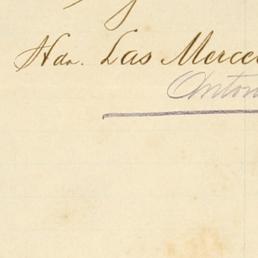 Hda. Las Merce
Anton